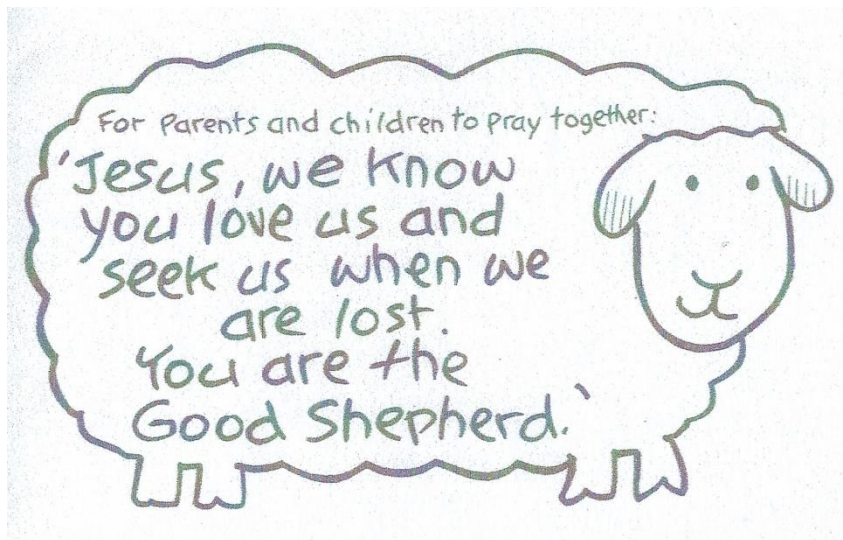 For Parents and children to pray together:
'Jesus, we know
you love us and
seek us when we
are lost.
You are the
Good Shepherd.'